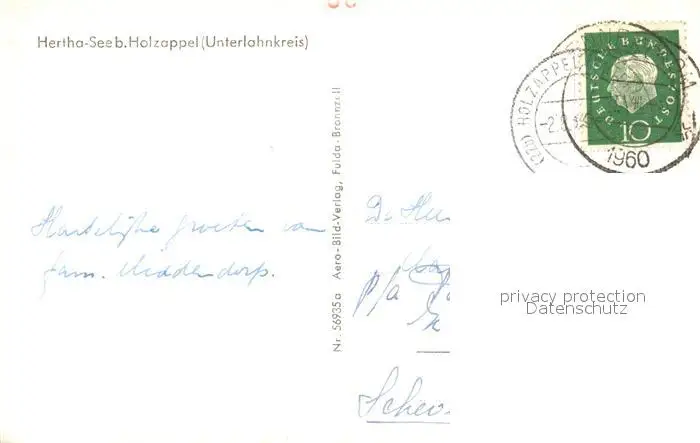 Hertha-See b. Holzapfel (Unterlahnkreis)
Hartelijke groeten van
fam. Middendorp.
Nr. 56935a Aero-Bild-Verlag, Fulda-Bronnzell
p/a
DEUTSCHE BUNDESPOST
10
(22b) HOLZAPPEL
1960
privacy protection
Datenschutz